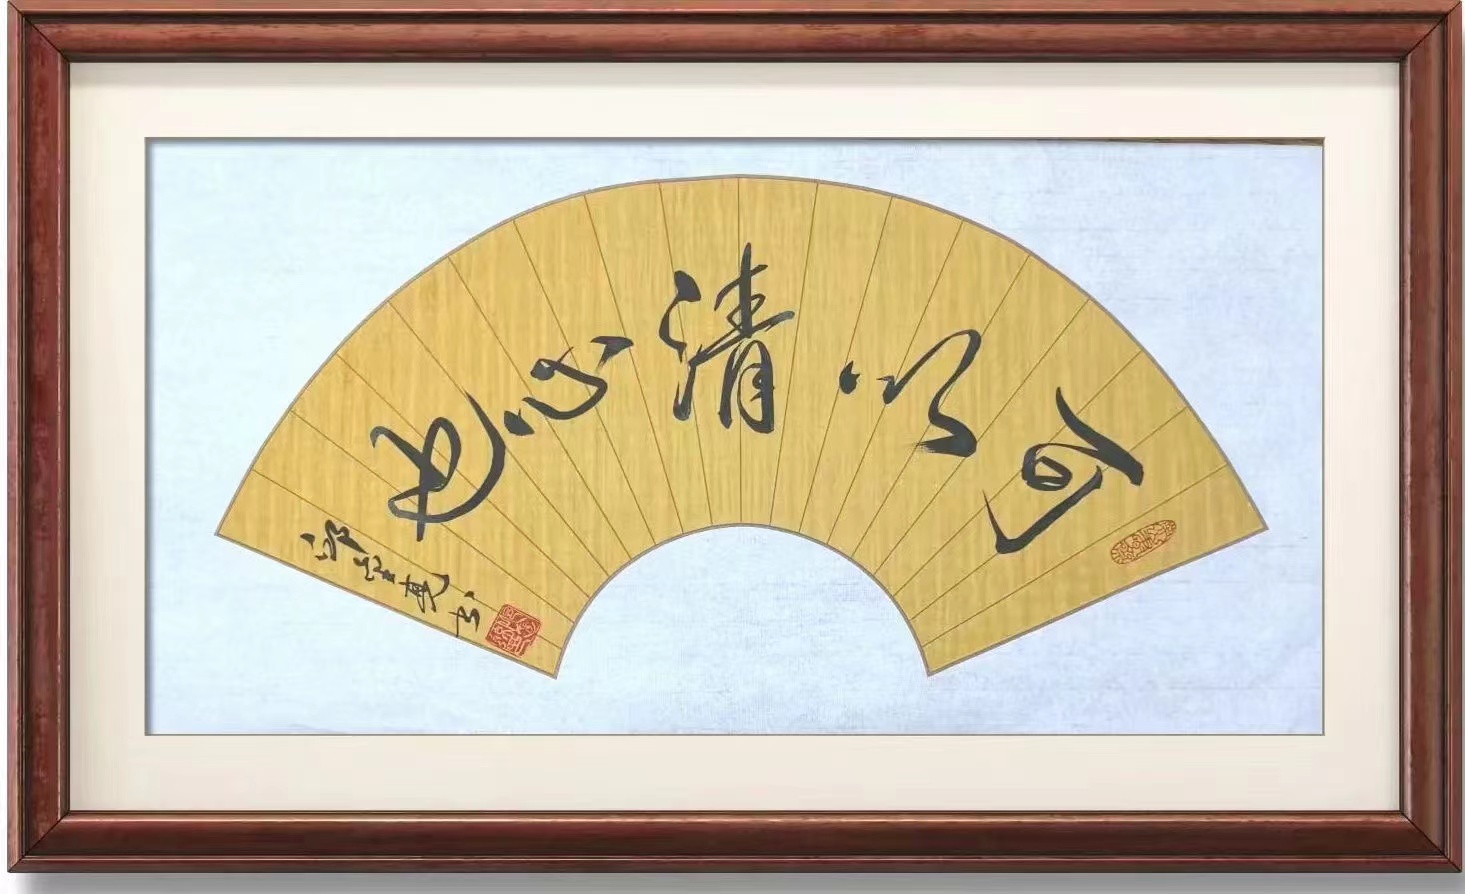 可以清心也